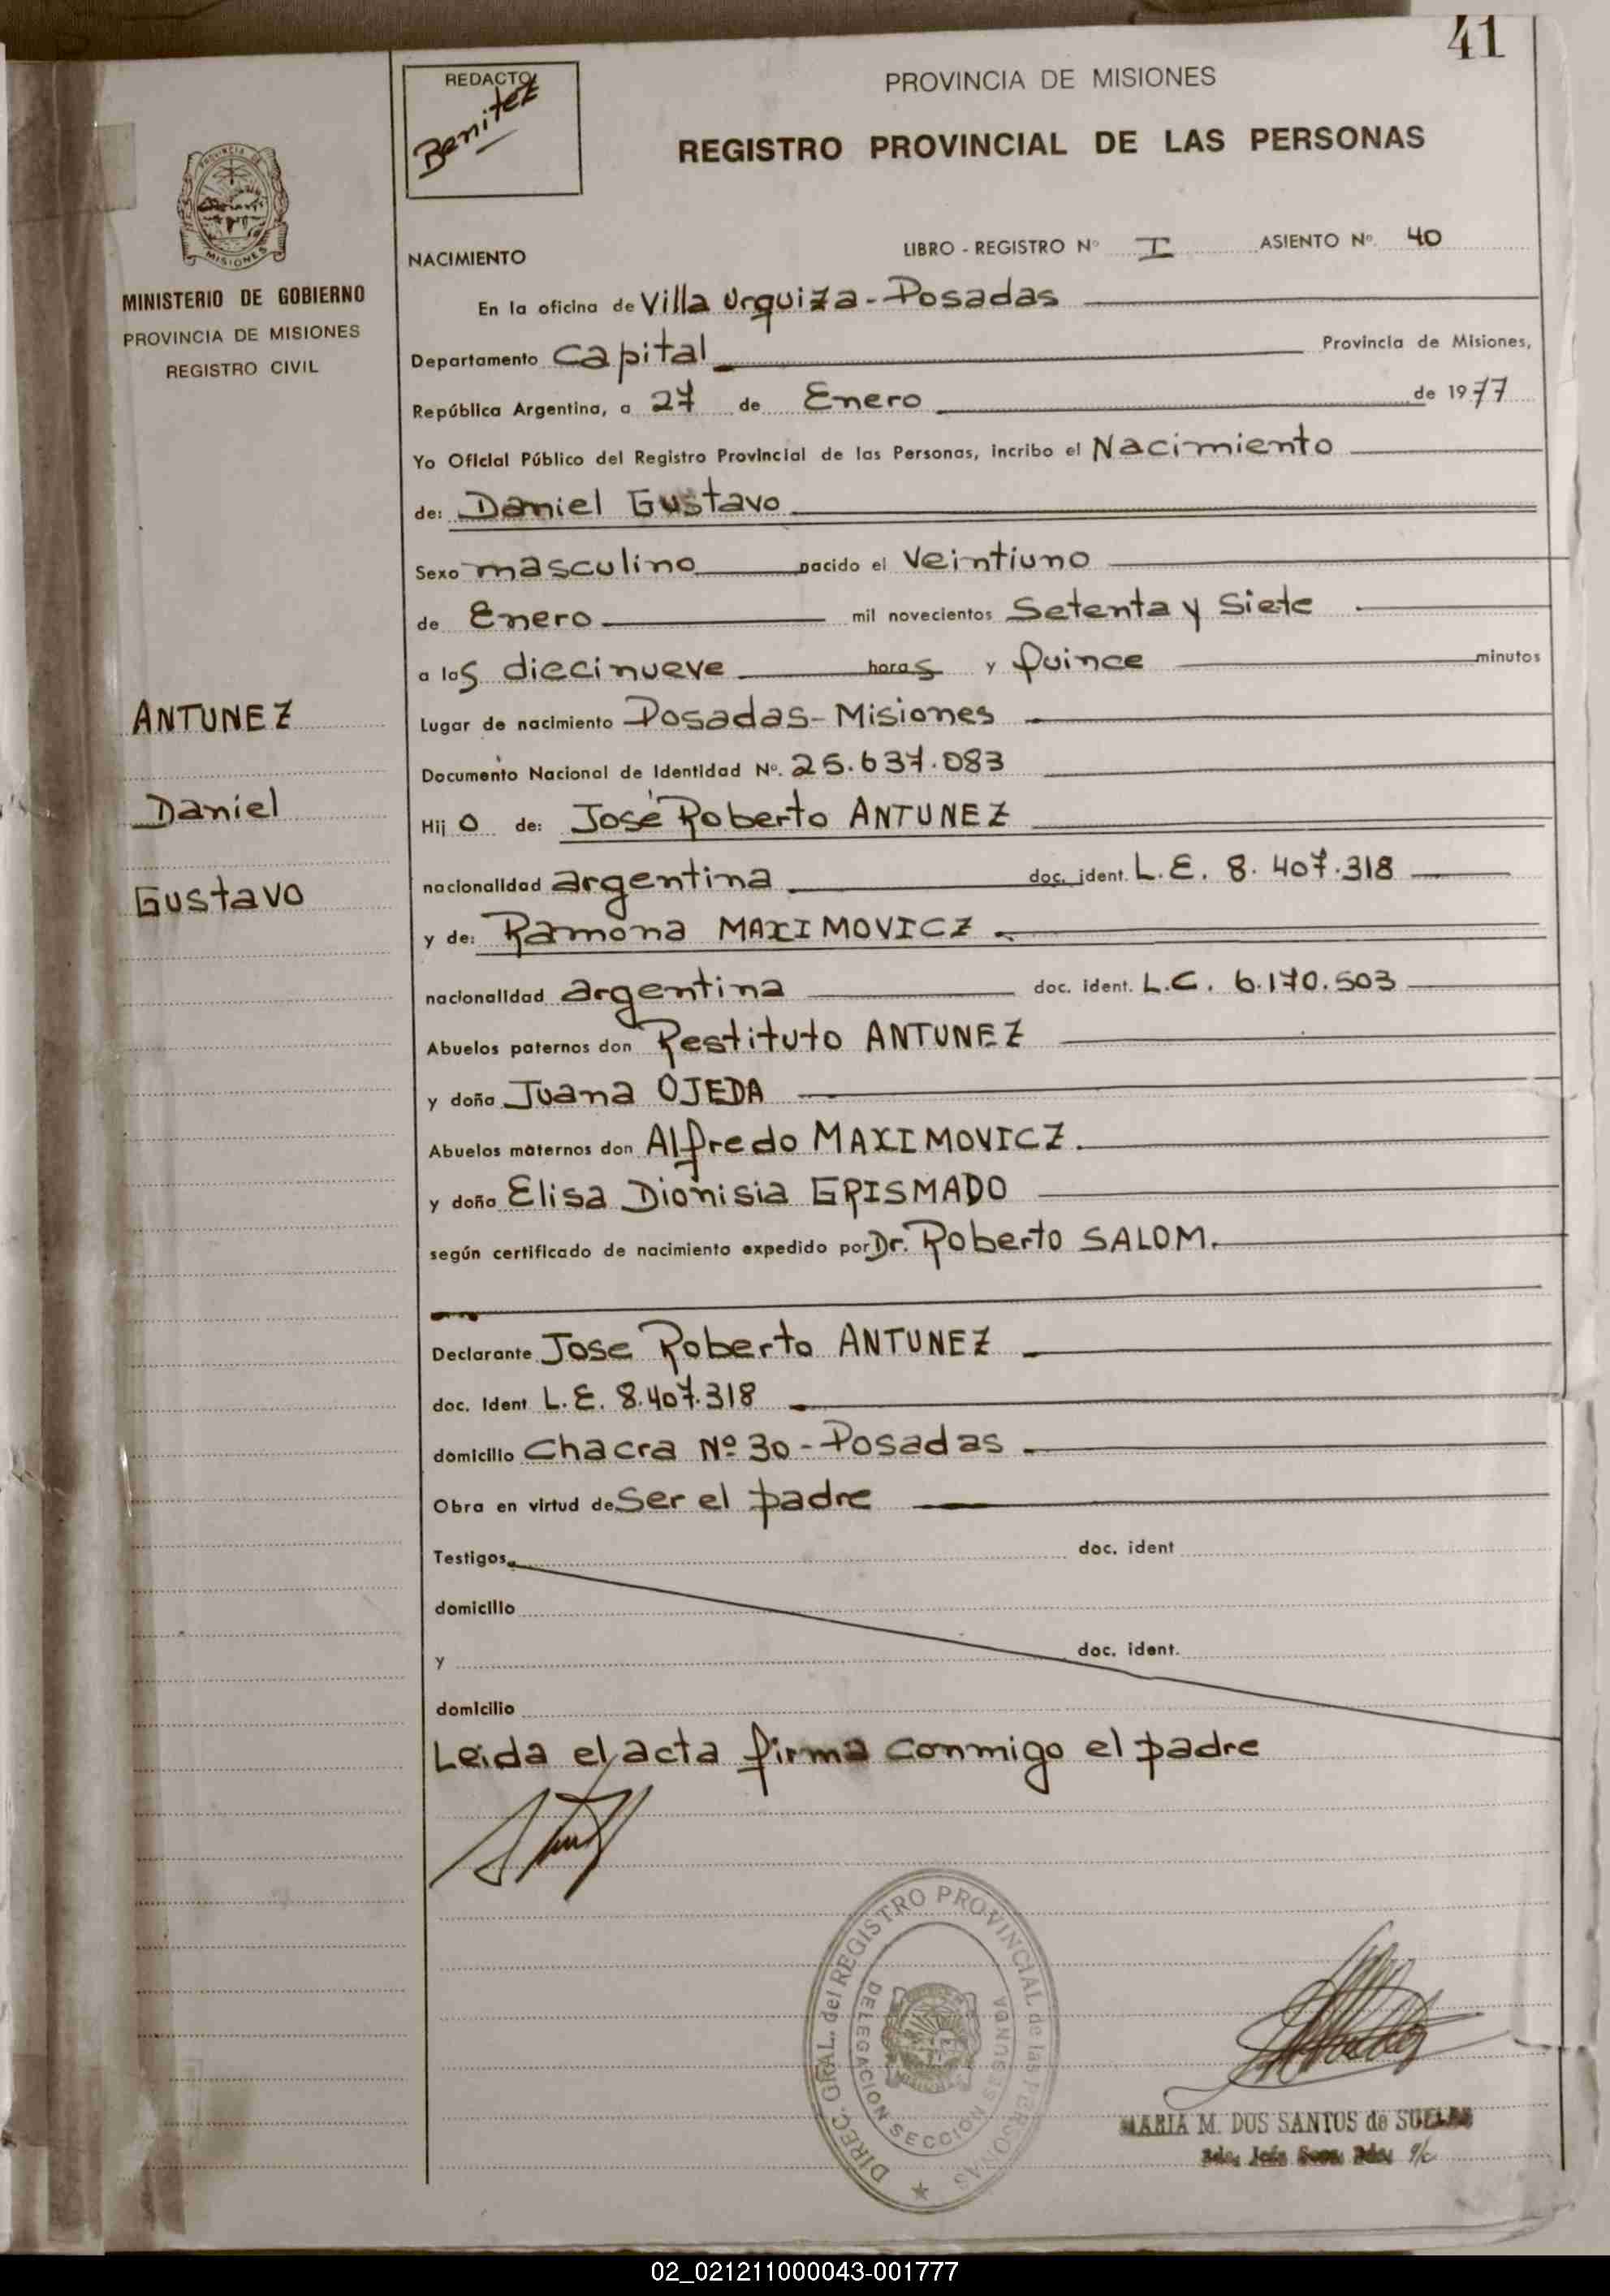 41
REDACTO
Benitez
PROVINCIA DE MISIONES
REGISTRO PROVINCIAL DE LAS PERSONAS
PROVINCIA DE
MISIONES
MINISTERIO DE GOBIERNO
PROVINCIA DE MISIONES
REGISTRO CIVIL
NACIMIENTO LIBRO - REGISTRO Nº I ASIENTO Nº 40
En la oficina de Villa Urquiza - Posadas
Departamento Capital Provincia de Misiones,
República Argentina, a 27 de Enero de 1977
Yo Oficial Público del Registro Provincial de las Personas, incribo el Nacimiento
de: Daniel Gustavo
Sexo masculino nacido el Veintiuno
de Enero mil novecientos Setenta y Siete
a las diecinueve horas y Quince minutos
ANTUNEZ
Lugar de nacimiento Posadas - Misiones
Documento Nacional de Identidad Nº. 25.637.083
Daniel
Hijo de: José Roberto ANTUNEZ
Gustavo
nacionalidad argentina doc. ident. L.E. 8.407.318
y de: Ramona MAXIMOVICZ
nacionalidad argentina doc. ident. L.C. 6.170.503
Abuelos paternos don Restituto ANTUNEZ
y doña Juana OJEDA
Abuelos maternos don Alfredo MAXIMOVICZ.
y doña Elisa Dionisia GRISMADO
según certificado de nacimiento expedido por Dr. Roberto SALOM.
Declarante Jose Roberto ANTUNEZ
doc. Ident L.E. 8.407.318
domicilio Chacra Nº 30 - Posadas
Obra en virtud de Ser el padre
Testigos doc. ident
domicilio
y doc. ident.
domicilio
Leida el acta firma conmigo el padre
DIREC. GRAL. del REGISTRO PROVINCIAL de las PERSONAS
DELEGACION SECCION SEGUNDA
MARIA M. DOS SANTOS de
02_021211000043-001777